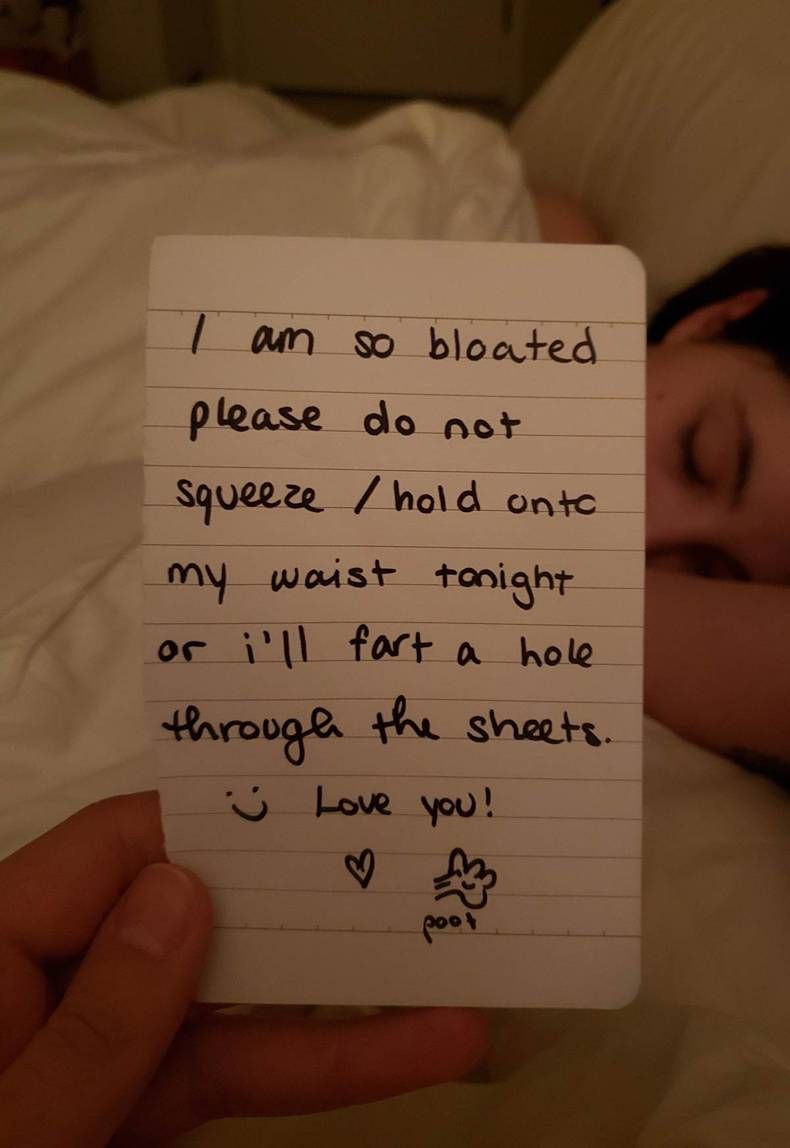 I am so bloated
please do not
squeeze / hold onto
my waist tonight
or i'll fart a hole
through the sheets.
:) Love you!
♡
poot